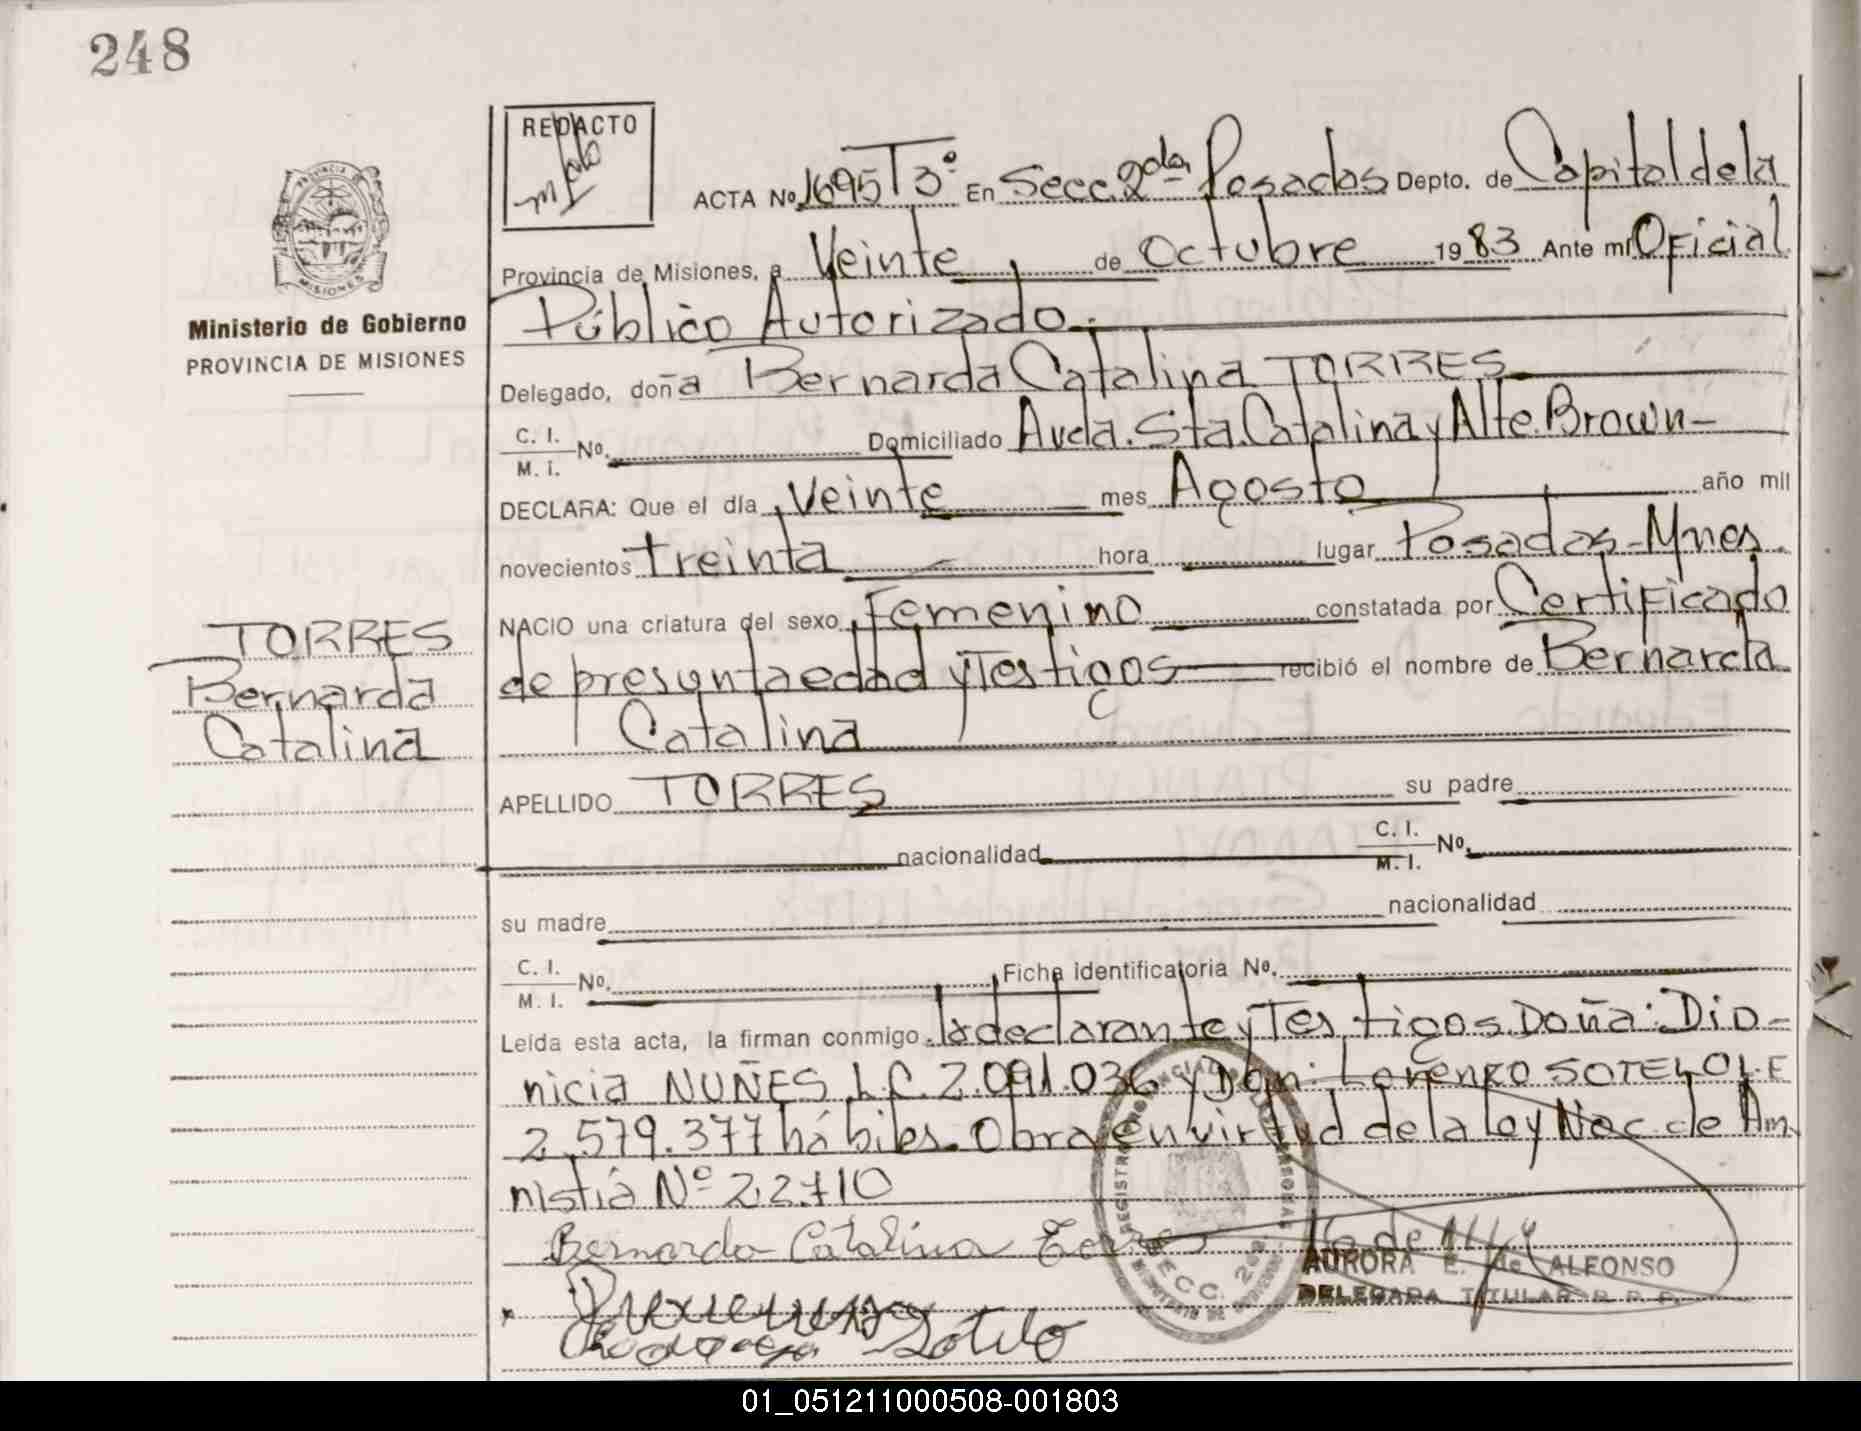 248
REDACTO
PROVINCIA DE
MISIONES
Ministerio de Gobierno
PROVINCIA DE MISIONES
ACTA No 1695 T 3° En Secc. 2da Posadas Depto. de Capital de la
Provincia de Misiones, a Veinte de Octubre 1983 Ante mí Oficial
Público Autorizado.
Delegado, doña Bernarda Catalina TORRES
C. I.
M. I. No. Domiciliado Avda. Sta. Catalina y Alte. Brown-
DECLARA: Que el día Veinte mes Agosto año mil
novecientos treinta hora lugar Posadas-Mnes.
NACIO una criatura del sexo Femenino constatada por Certificado
de presunta edad y Testigos recibió el nombre de Bernarda
Catalina
TORRES
Bernarda
Catalina
APELLIDO TORRES su padre
nacionalidad C. I.
M. I. No.
su madre nacionalidad
C. I.
M. I. No. Ficha identificatoria No.
Leída esta acta, la firman conmigo la declarante y Testigos Doña: Dio-
nicia NUÑES L.C. 2.091.036 y Don: Lorenzo SOTELO L.E
2.579.377 hábiles. Obra en virtud de la ley Nac. de Am-
nistía Nº 22.710
Bernarda Catalina Torres
Sotelo
SECC. 2da.
AURORA E. de ALFONSO
DELEGADA TITULAR R. P. P.
01_051211000508-001803